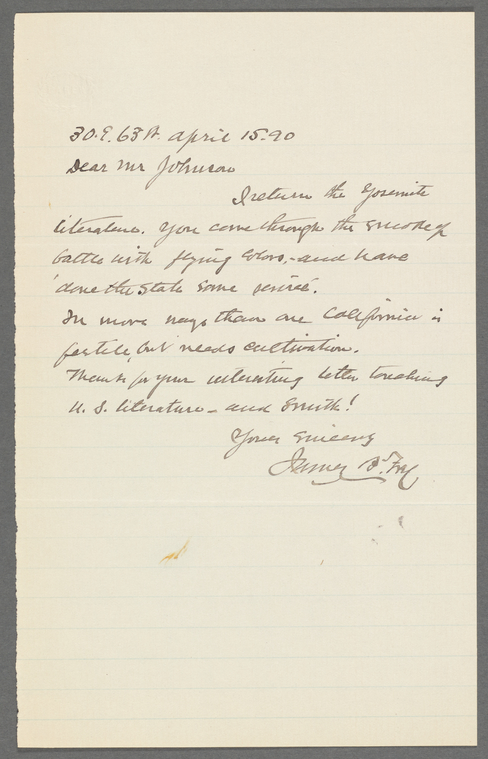 30. E. 63 St. April 15. 90
Dear Mr Johnson
I return the Yosemite
literature. You come through the smoke of
battle with flying colors,—and have
done the State some service.
In more ways than one California is
fertile, but needs cultivation.
Thanks for your interesting letter touching
U. S. literature — and Smith!
Yours Sincerely
James B. Fry